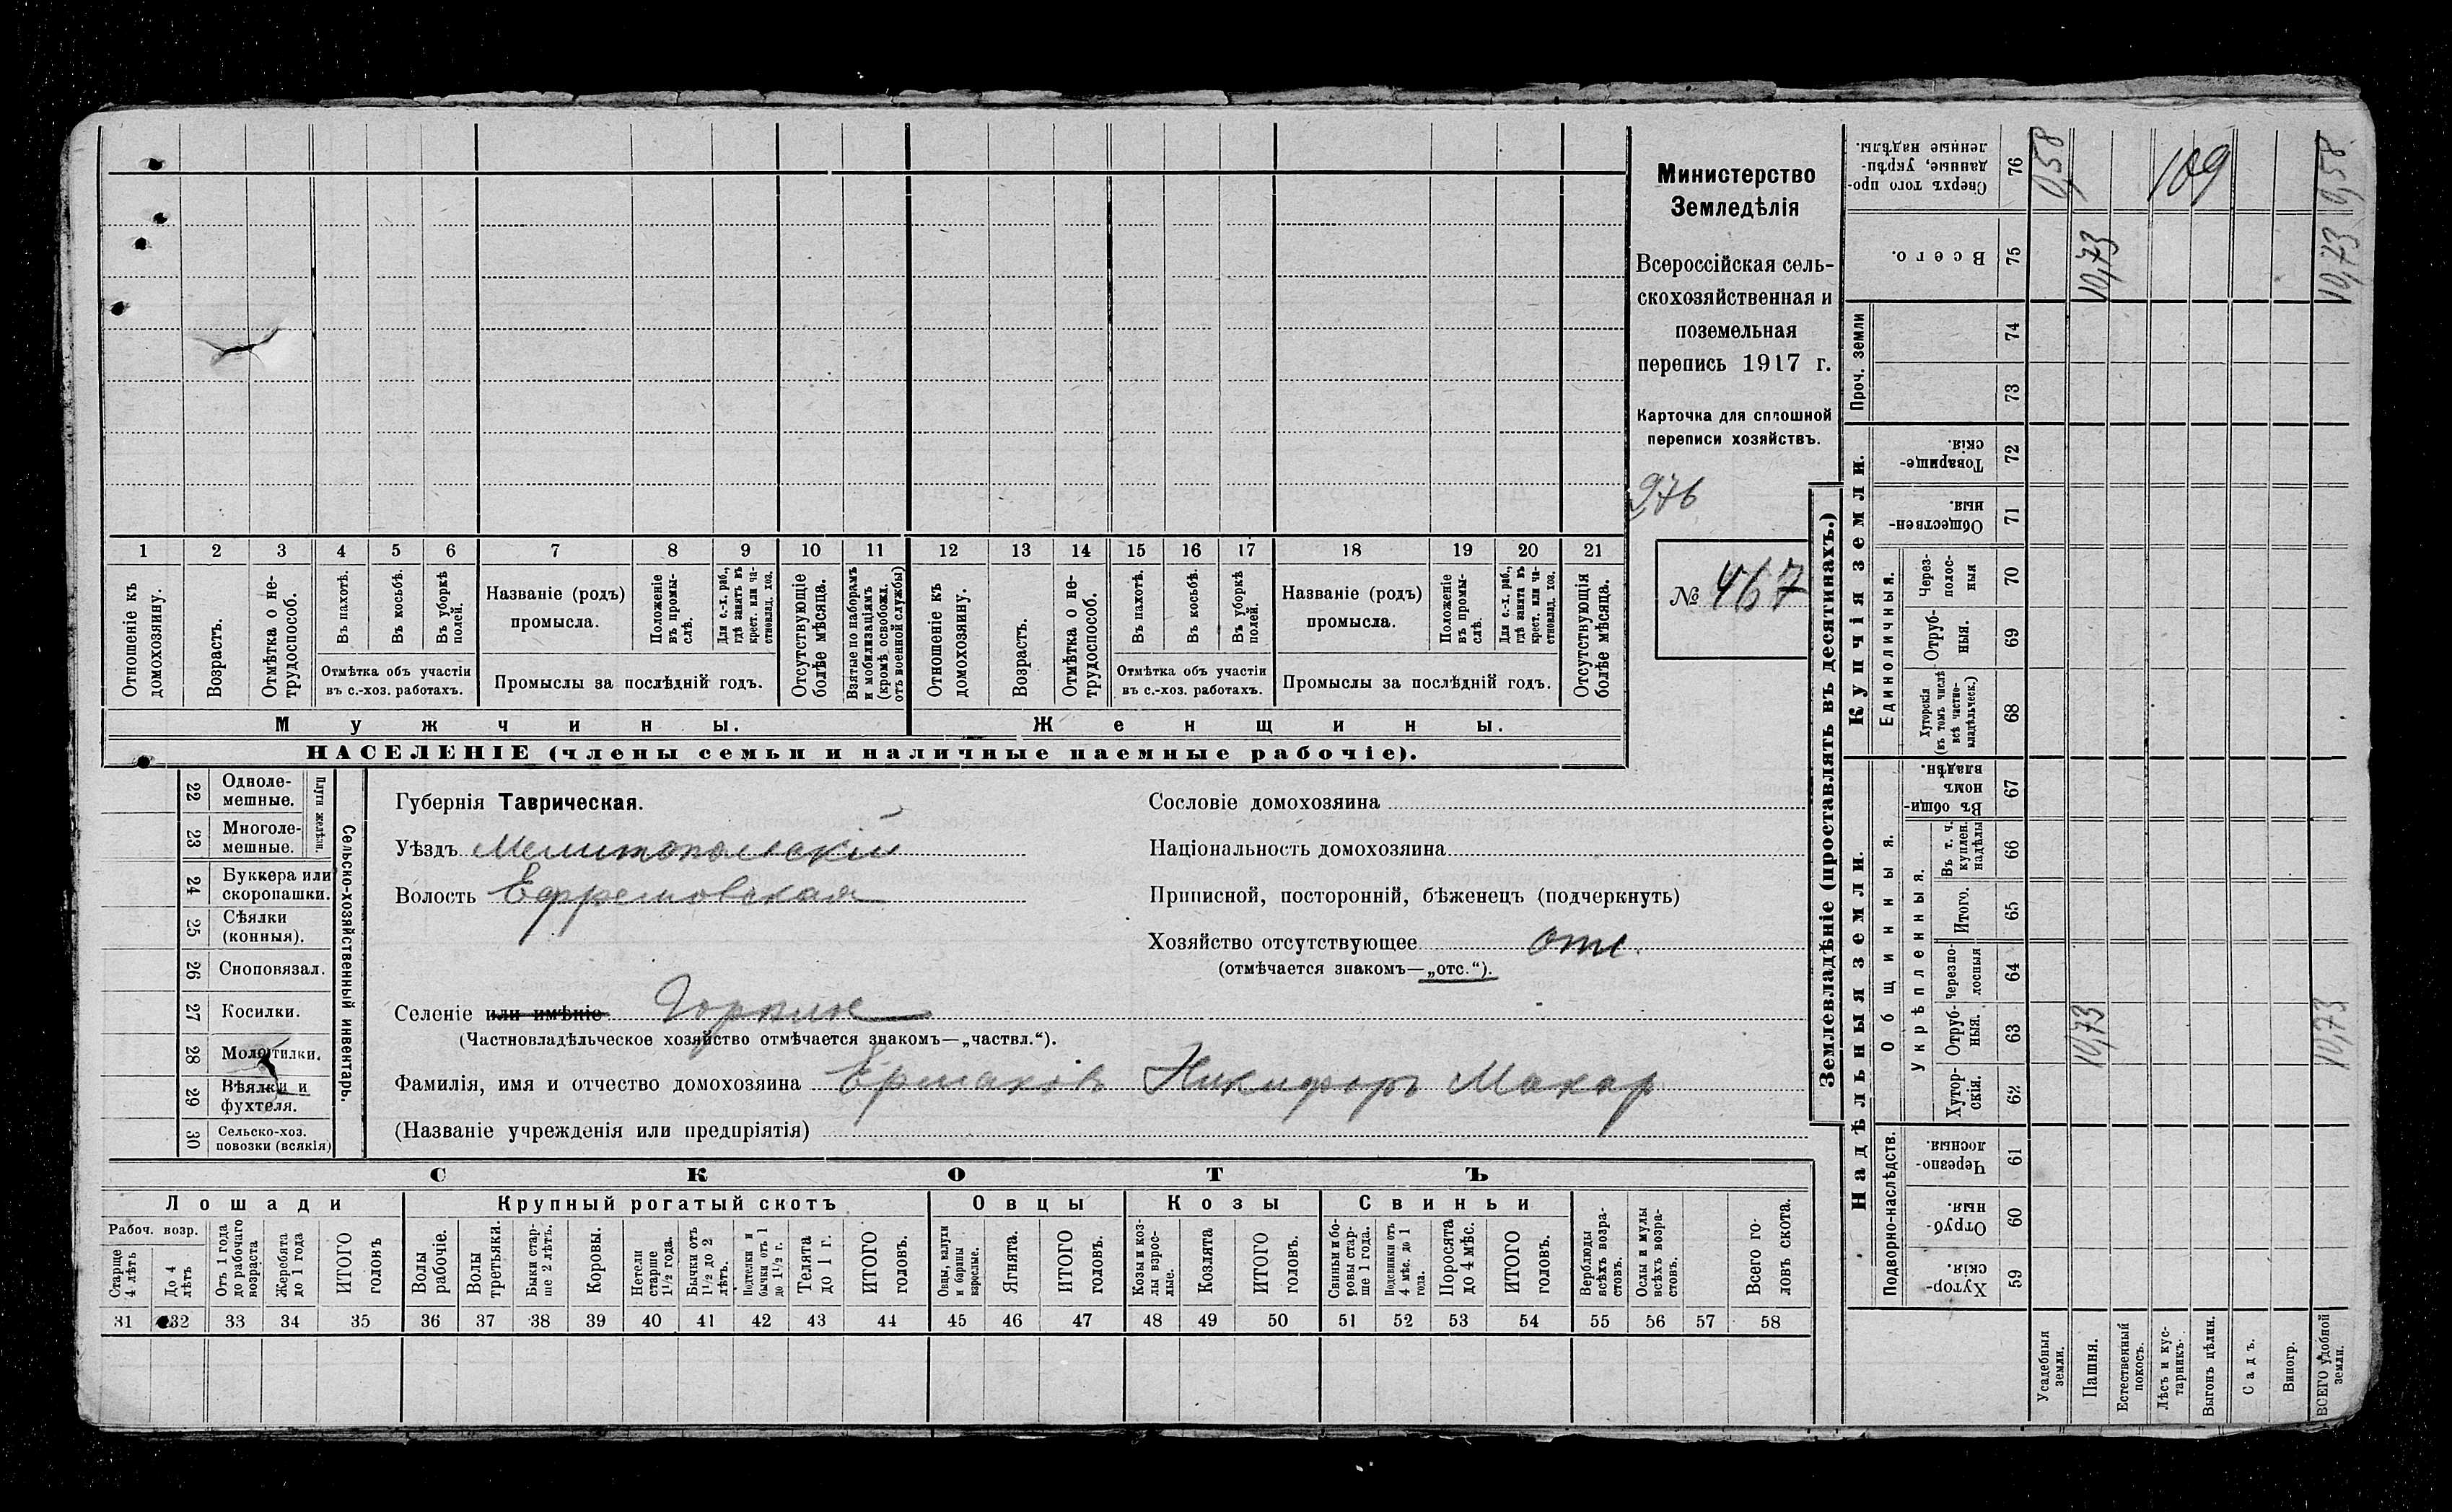 Министерство
Земледѣлія
Всероссійская сель-
скохозяйственная и
поземельная
перепись 1917 г.
Карточка для сплошной
переписи хозяйствъ.
276
№ 467
1 2 3 4 5 6 7 8 9 10 11 12 13 14 15 16 17 18 19 20 21
Отношеніе къ домохозяину.
Возрастъ.
Отмѣтка о не-трудоспособ.
Въ пахотѣ.
Въ косьбѣ.
Въ уборкѣ полей.
Отмѣтка объ участіи
въ с.-хоз. работахъ.
Названіе (родъ)
промысла.
Положеніе въ промы-слѣ.
Для с.-х. раб., гдѣ занятъ въ крест. или ча-стновлад. хоз.
Промыслы за послѣдній годъ.
Отсутствующіе болѣе мѣсяца.
Взятые по наборамъ и мобилизаціямъ (кромѣ освобожд. отъ военной службы)
Отношеніе къ домохозяину.
Возрастъ.
Отмѣтка о не-трудоспособ.
Въ пахотѣ.
Въ косьбѣ.
Въ уборкѣ полей.
Отмѣтка объ участіи
въ с.-хоз. работахъ.
Названіе (родъ)
промысла.
Положеніе въ промы-слѣ.
Для с.-х. раб., гдѣ занята въ крест. или ча-стновлад. хоз.
Промыслы за послѣдній годъ.
Отсутствующія болѣе мѣсяца.
Мужчины.
Женщины.
НАСЕЛЕНІЕ (члены семьи и наличные наемные рабочіе).
22 Одноле-мешные.
23 Многоле-мешные.
Плуги желѣзн.
24 Буккера или скоропашки.
25 Сѣялки (конныя).
26 Сноповязал.
27 Косилки.
28 Молотилки.
29 Вѣялки и фухтеля.
30 Сельско-хоз. повозки (всякія)
Сельско-хозяйственный инвентарь.
Губернія Таврическая.
Уѣздъ Мелитопольскій
Волость Ефремовская
Селеніе или имѣніе Горькие
(Частновладѣльческое хозяйство отмѣчается знакомъ—„частвл.“).
Фамилія, имя и отчество домохозяина Ермаковъ Никифоръ Макар
(Названіе учрежденія или предпріятія)
Сословіе домохозяина
Національность домохозяина
Приписной, посторонній, бѣженецъ (подчеркнуть)
Хозяйство отсутствующее отс.
(отмѣчается знакомъ—„отс.“).
СКОТЪ
Лошади
Крупный рогатый скотъ
Овцы
Козы
Свиньи
Рабоч. возр.
Старше 4 лѣтъ
До 4 лѣтъ
Отъ 1 года до рабочаго возраста
Жеребята до 1 года
ИТОГО головъ
Волы рабочіе.
Волы третьяки.
Быки стар-ше 2 лѣтъ.
Коровы.
Нетели старше 1½ года.
Бычки отъ 1½ до 2 лѣтъ.
Подтелки и бычки отъ 1 до 1½ г.
Телята до 1 г.
ИТОГО головъ.
Овцы, валухи и бараны взрослые.
Ягнята.
ИТОГО головъ.
Козы и коз-лы взрос-лые.
Козлята
ИТОГО головъ.
Свиньи и бо-ровы стар-ше 1 года.
Подсвинки отъ 4 мѣс. до 1 года.
Поросята до 4 мѣс.
ИТОГО головъ.
Верблюды всѣхъ возра-стовъ.
Ослы и мулы всѣхъ возра-стовъ.
Всего го-ловъ скота.
31 32 33 34 35 36 37 38 39 40 41 42 43 44 45 46 47 48 49 50 51 52 53 54 55 56 57 58
Землевладѣніе (проставлять въ десятинахъ.)
Надѣльныя земли.
Купчія земли.
Проч. земли
Подворно-наслѣдств.
Общинныя.
Укрѣпленныя.
Единоличныя.
Сверхъ того про-данные, укрѣп-ленные надѣлы. 76 0,58 109 0,58
Всего. 75 10,73 10,73
74
73
Товарище-скія. 72
Обществен-ныя. 71
Через-полос-ныя 70
Отруб-ныя. 69
Хуторскія (въ томъ числѣ всѣ частно-владѣльческ.) 68
Въ общи-номъ владѣн. 67
Въ т. ч. куплен. надѣлы 66
Итого. 65
Черезпо-лосныя 64
Отруб-ныя. 63 10,73 10,73
Хутор-скія. 62
Черезпо-лосныя. 61
Отруб-ныя. 60
Хутор-скія. 59
Усадебныя земли.
Пашня.
Естественный покосъ.
Лѣсъ и кус-тарникъ.
Выгонъ цѣлин.
Садъ.
Виногр.
ВСЕГО удобной земли.